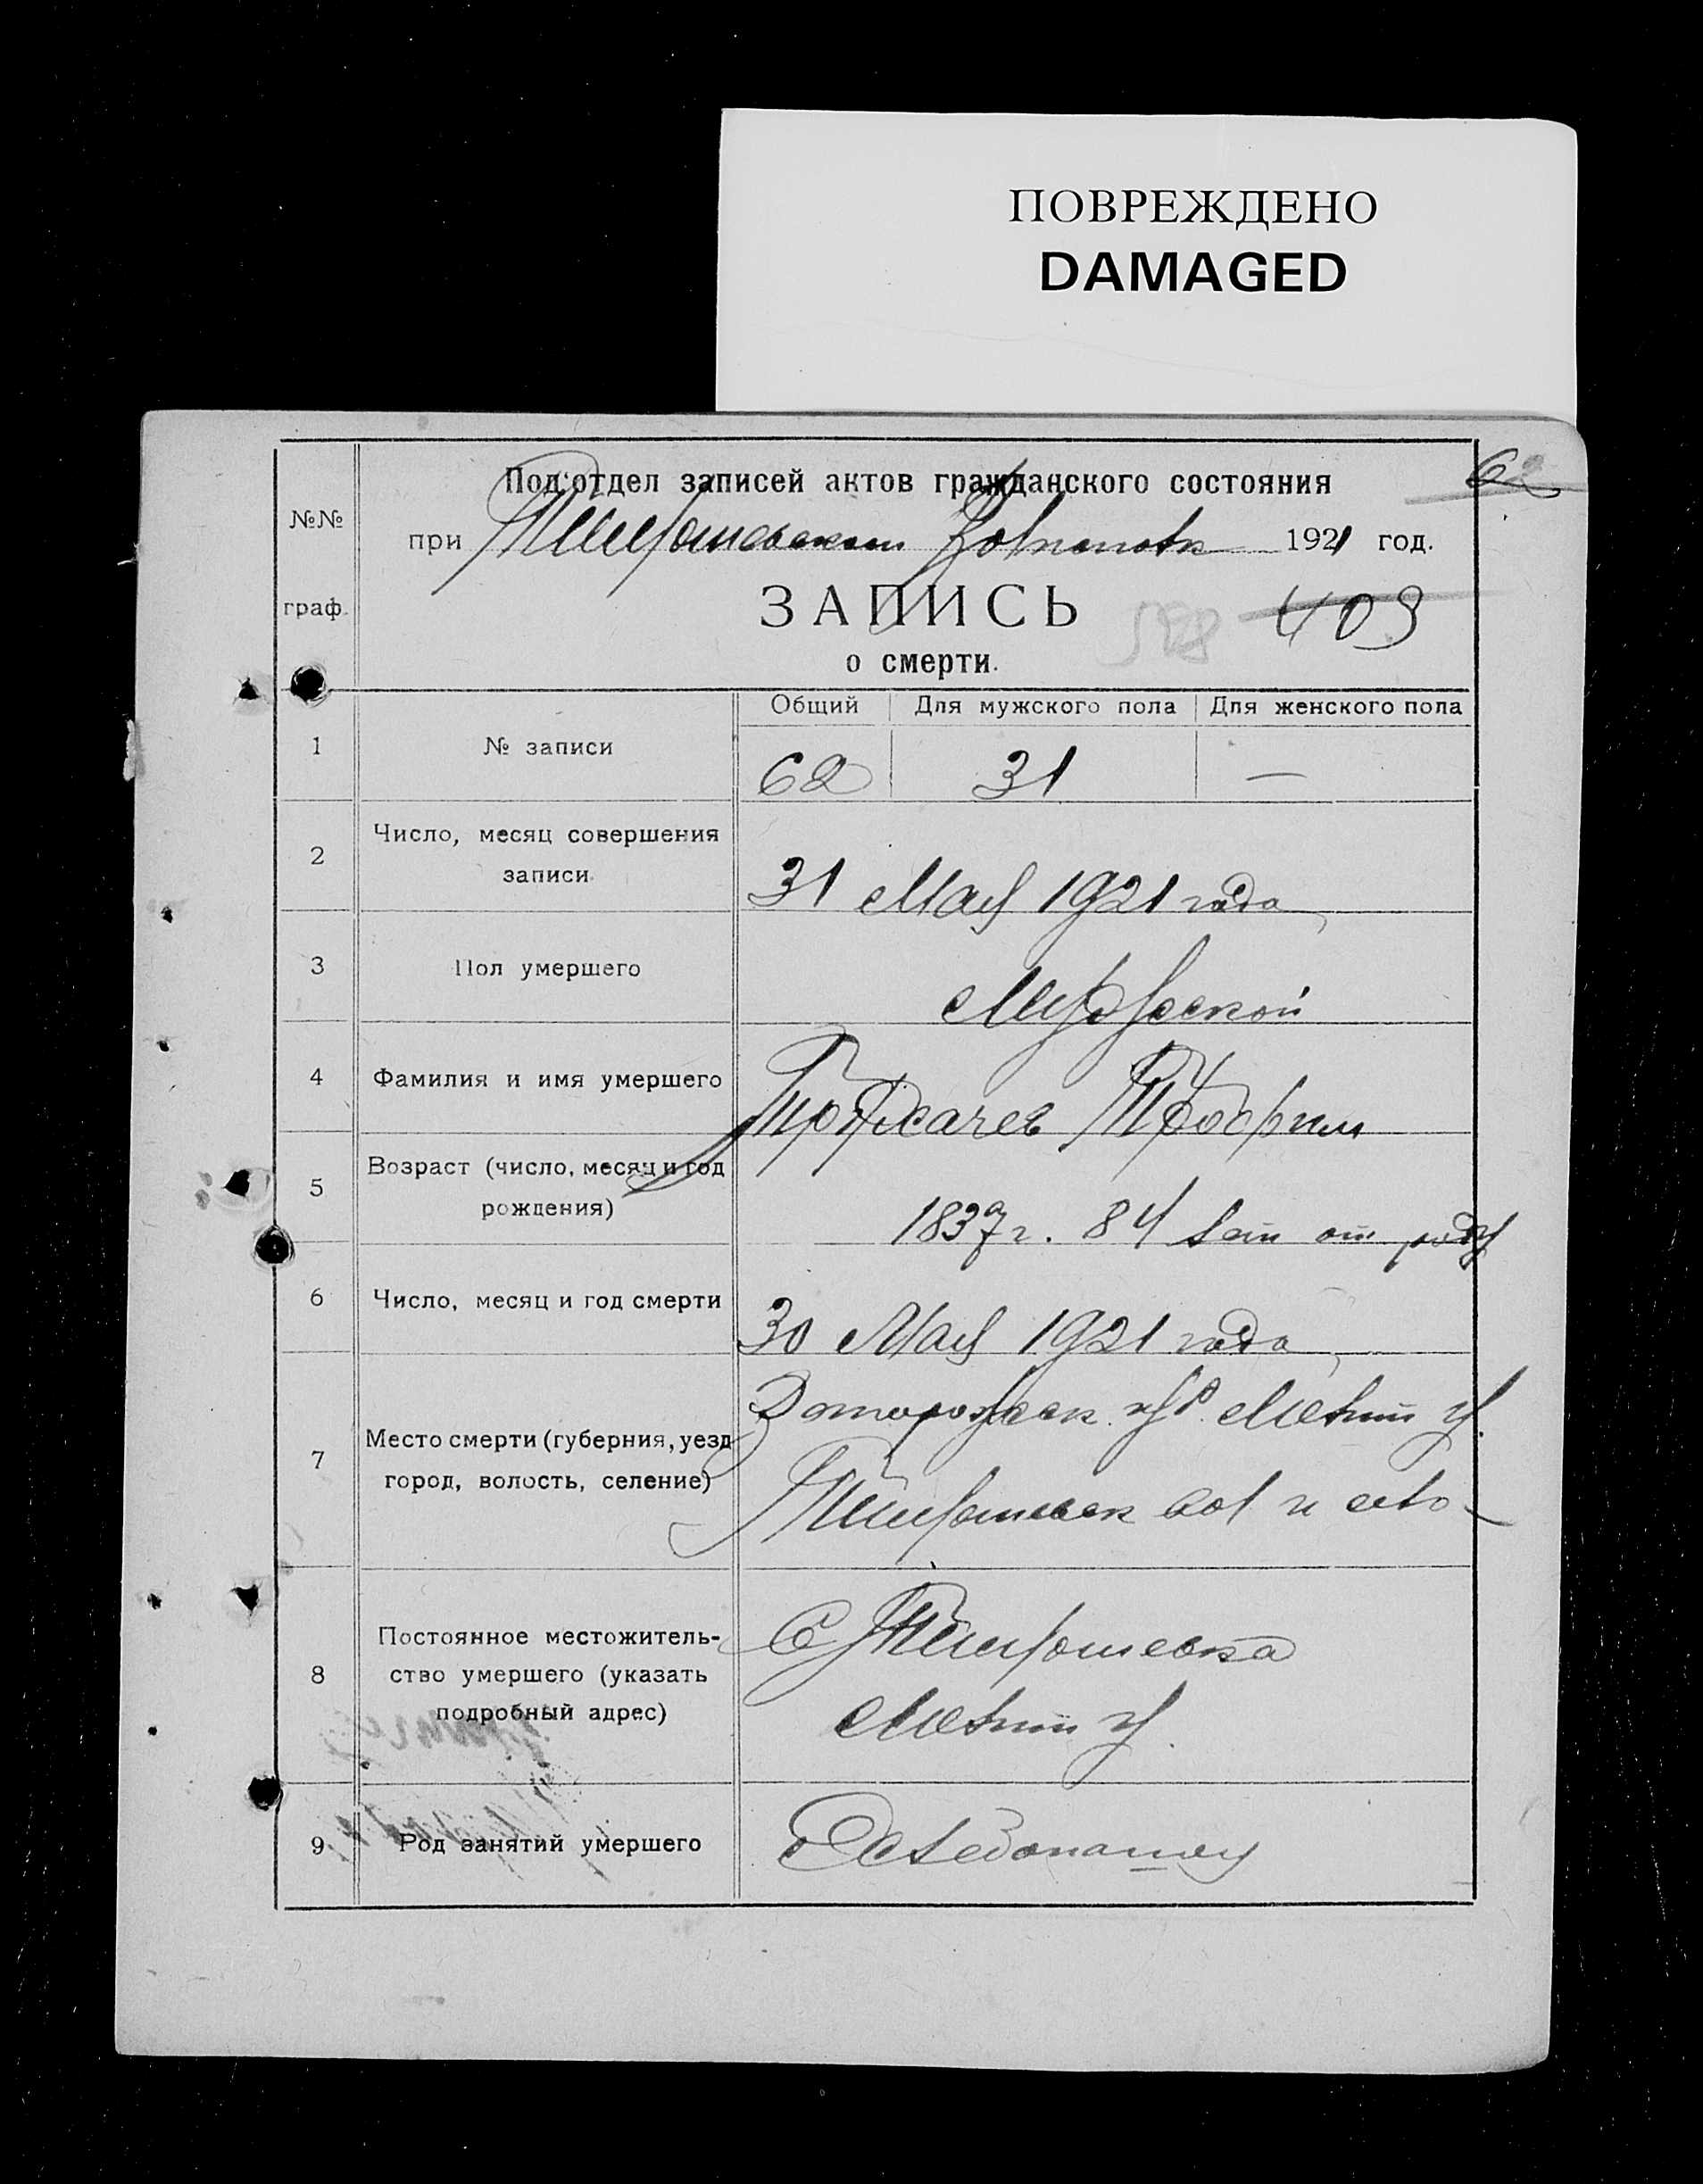 ПОВРЕЖДЕНО
DAMAGED
62
№№
граф.
Под'отдел записей актов гражданского состояния
при Тимошевском Волисполк 1921 год.
ЗАПИСЬ 409
о смерти.
Общий Для мужского пола Для женского пола
1 № записи 62 31 —
2 Число, месяц совершения
записи. 31 Мая 1921 года
3 Пол умершего Мужеской
4 Фамилия и имя умершего Трофим
5 Возраст (число, месяц и год
рождения) 1837 г. 84 лет от роду
6 Число, месяц и год смерти 30 Мая 1921 года
7 Место смерти (губерния, уезд
город, волость, селение) Запорожск. Мелит у.
вол и село
8 Постоянное местожитель-
ство умершего (указать
подробный адрес) С Тимошевка
Мелит у.
9 Род занятий умершего Хлебопашец